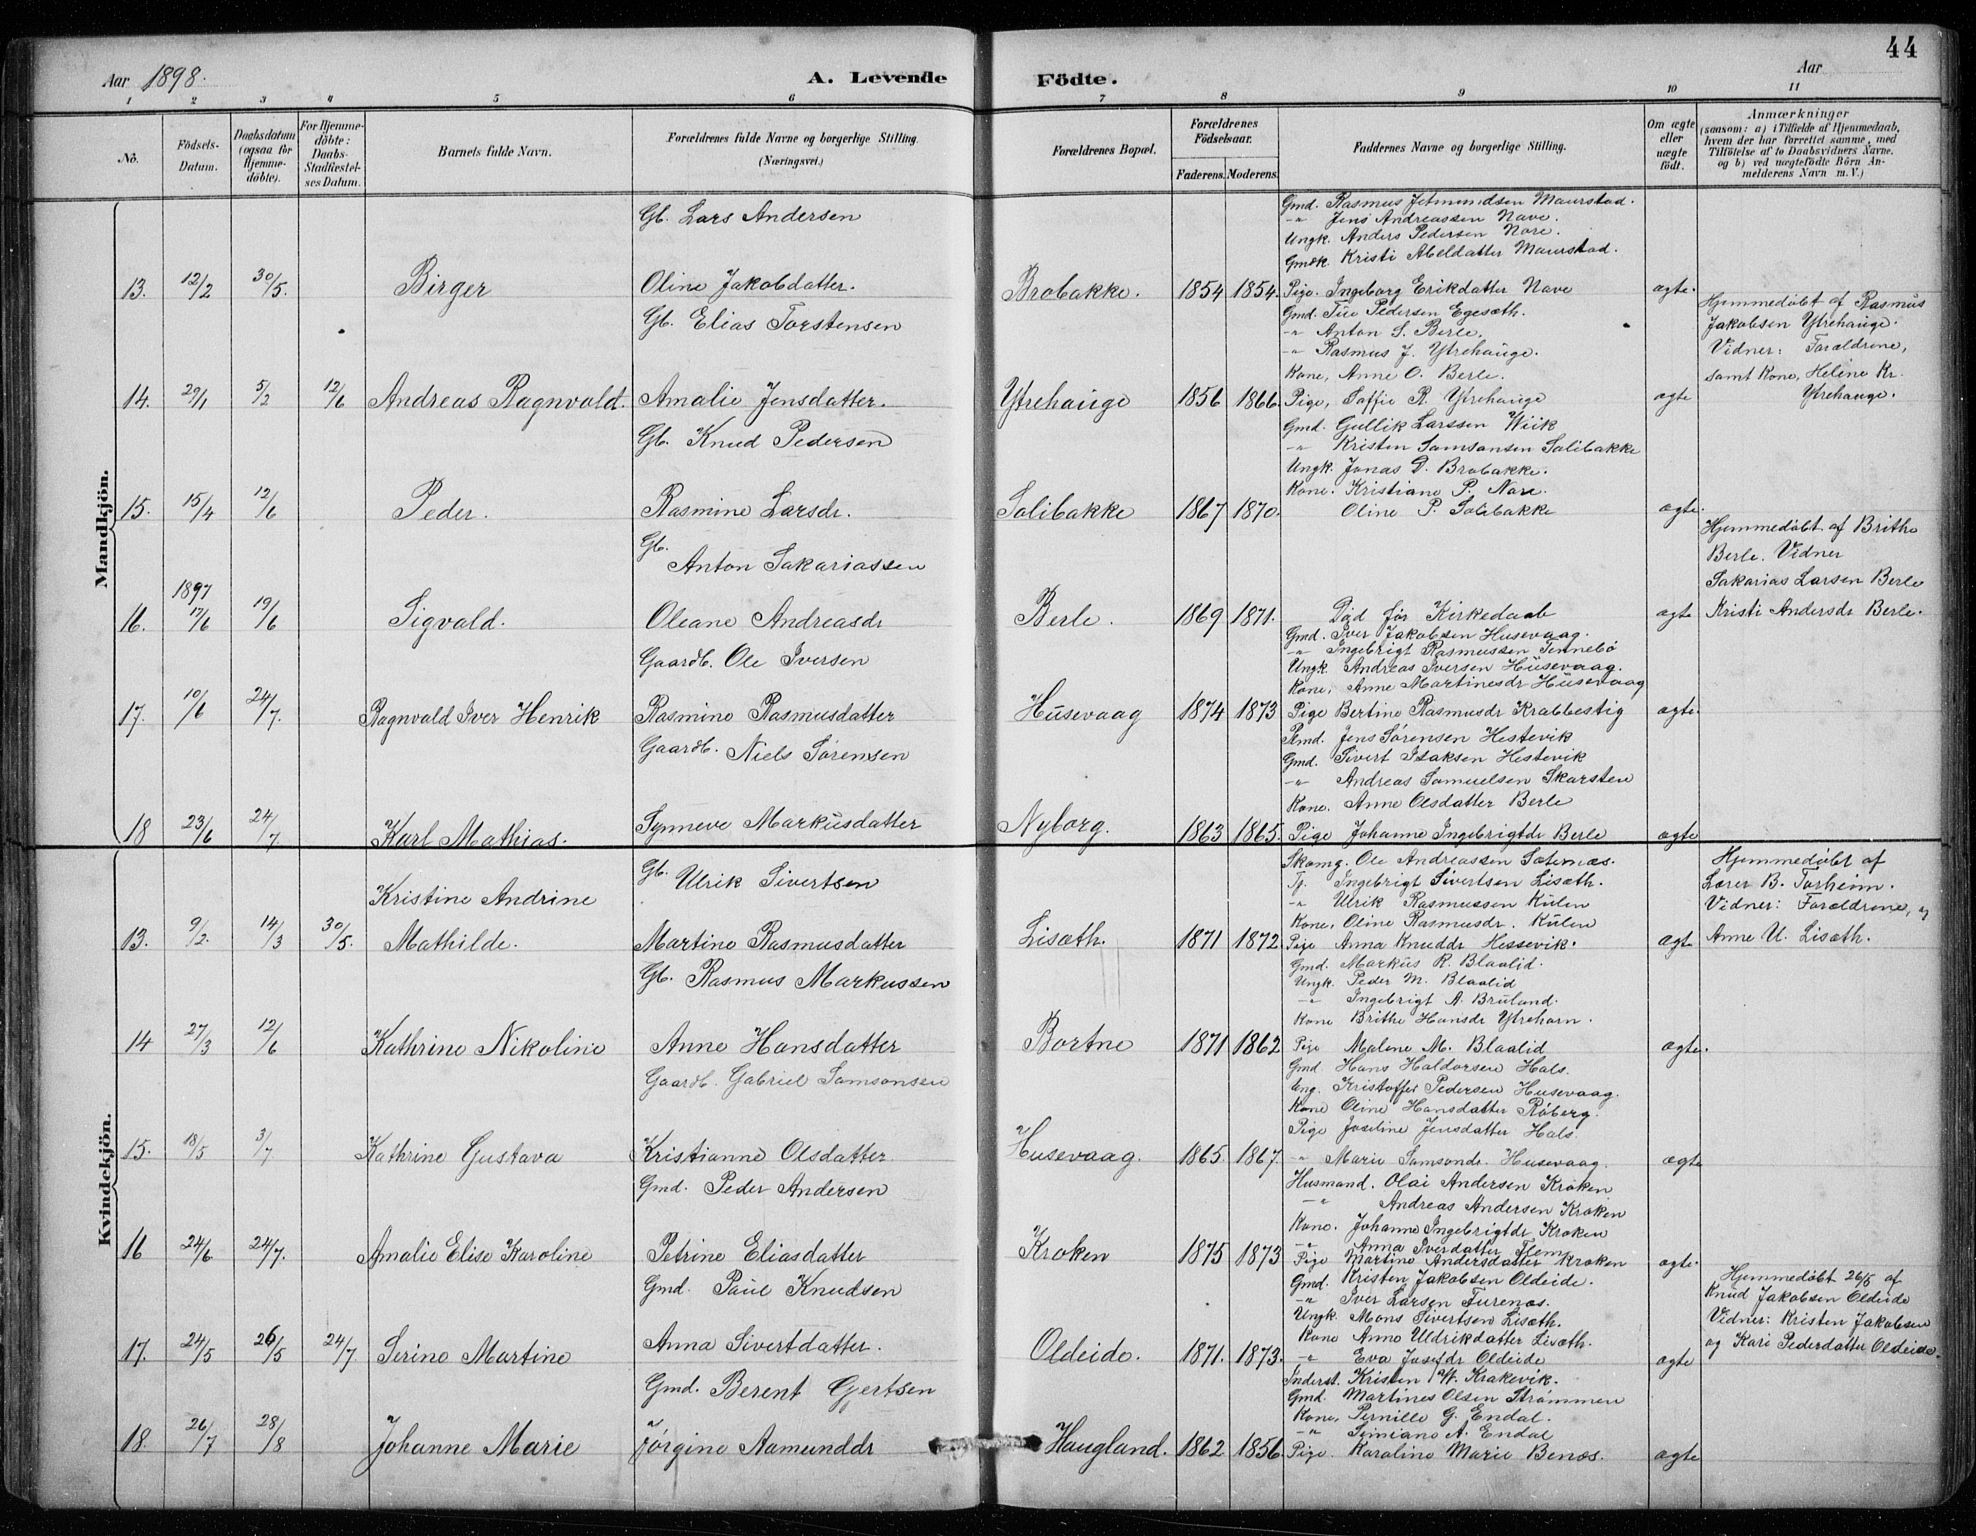 44
Aar 1898.
A. Levende Födte.
Aar
1 2 3 4 5 6 7 8 9 10 11
No.
Födsels-Datum.
Daabsdatum (ogsaa for Hjemme-döbte).
For Hjemme-döbte: Daabs-Stadfæstel-ses Datum.
Barnets fulde Navn.
Forældrenes fulde Navne og borgerlige Stilling. (Næringsvei.)
Forældrenes Bopæl.
Forældrenes Födselsaar.
Faderens. Moderens.
Faddernes Navne og borgerlige Stilling.
Om ægte eller uægte födt.
Anmærkninger
(saasom: a) i Tilfælde af Hjemmedaab,
hvem der har forrettet samme, med
Tilföielse af to Daabsvidners Navne.
og b) ved uægtefödte Börn An-
melderens Navn m. V.)
Mandkjön.
Gb. Lars Andersen
Gmd. Rasmus Jetmundsen Maurstad.
-"- Jens Andreassen Nave.
Ungk. Anders Pedersen Nore.
Gmdk. Kristi Abeldatter Maurstad.
13. 12/2 30/5. Birger Oline Jakobdatter. Brobakke. 1854 1854. Pige. Ingeborg Erikdatter Nave ægte.
Gb. Elias Torstensen
Gmd. Tue Pedersen Egesæth.
-"- Anton S. Berle.
-"- Rasmus J. Ytrehauge.
Kone, Anne O. Berle.
Hjemmedøbt af Rasmus
Jakobsen Ytrehauge.
Vidner: Forældrene,
samt Kone, Heline Kr.
Ytrehauge.
14. 29/1 5/2 12/6 Andreas Ragnvald. Amalie Jensdatter. Ytrehauge 1856 1866. Pige, Soffie R. Ytrehauge ægte
Gb. Knud Pedersen
Gmd. Gullik Larssen Wiik
-"- Kristen Samsonsen Solibakke
Ungk. Jonas D. Brobakke.
Kone. Kristiane P. Nore.
15. 15/4 12/6 Peder. Rasmine Larsdr. Solibakke 1867 1870. Oline P. Solibakke ægte.
Gb. Anton Sakariassen
Hjemmedøbt af Brithe
Berle. Vidner
Sakarias Larsen Berle
Kristi Andersdr Berle.
1897
16. 17/6 19/6 Sigvald. Oleane Andreasdr Berle. 1869 1871. Død før Kirkedaab ægte
Gaardb. Ole Iversen
Gmd. Iver Jakobsen Husevaag.
-"- Ingebrigt Rasmussen Tennebö
Ungk. Andreas Iversen Husevaag.
Kone, Anne Martinesdr Husevaag
17. 10/6 24/7. Ragnvald Iver Henrik Rasmine Rasmusdatter Husevaag 1874 1873 Pige Bertine Rasmusdr Krabbestig ægte.
Gaardb. Niels Sørensen
Pmd. Jens Sørensen Hestevik
Gmd. Sivert Isaksen Hestevik
-"- Andreas Samuelsen Skarsten
Kone. Anne Olsdatter Berle
18 23/6 24/7 Karl Mathias. Synneve Markusdatter Nyborg. 1863 1865. Pige Johanne Ingebrigtdr Berle ægte
Kvindekjön.
Gb. Ulrik Sivertsen
Skomg. Ole Andreassen Sæternæs.
Tj. Ingebrigt Sivertsen Lisæth.
-"- Ulrik Rasmussen Kulen
Kone, Oline Rasmusdr. Kulen
Hjemmedøbt af
Lærer B. Torheim.
Vidner: Forældrene, og
Anne U. Lisæth.
13. 9/2. 14/3 30/5. Kristine Andrine Mathilde. Martine Rasmusdatter Lisæth. 1871 1872 Pige Anna Knuddr Hessevik. ægte
Gb. Rasmus Markussen
Gmd. Markus R. Blaalid.
Ungk. Peder M. Blaalid
-"- Ingebrigt A. Bruland.
Kone Brithe Hansdr Ytrehorn.
14 27/3 12/6 Kathrine Nikoline Anne Hansdatter Bortne 1871 1862 Pige Malene M. Blaalid ægte.
Gaardb. Gabriel Samsonsen
Gmd Hans Haldorsen Hals.
Ung. Kristoffer Pedersen Husevaag.
Kone Oline Hansdatter Röberg.
Pige Joseline Jensdatter Hals.
15. 18/5 3/7 Kathrine Gustava Kristianne Olsdatter Husevaag. 1865 1867. -"- Marie Samsondr. Husevaag. ægte
Gmd. Peder Andersen
Husmand. Olai Andersen Kroken
-"- Andreas Andersen Kroken
Kone. Johanne Ingebrigtdr Kroken
-"- Anna Iverdatter Flem
16 24/6 24/7. Amalie Elise Karoline Petrine Eliasdatter Kroken 1875 1873 Pige Martine Andersdatter Kroken ægte.
Gmd. Paul Knudsen
Gmd. Kristen Jakobsen Oldeide.
-"- Iver Larsen Furenæs.
Ungk. Mons Sivertsen Lisæth.
Kone Anne Uldrikdatter Lisæth.
Hjemmedøbt 26/5 af
Knud Jakobsen Oldeide
Vidner: Kristen Jakobsen
og Kari Pedersdatter Oldeide.
17. 24/5 26/5 24/7. Serine Martine Anna Sivertdatter. Oldeide. 1871. 1873. -"- Eva Josefdr Oldeide ægte
Gmd. Berent Gjertsen
Inderst. Kristen W. Krakevik.
Gmd. Martines Olsen Strömmen
Kone, Pernille G. Endal.
-"- Simiane A. Endal
18. 26/7 28/8 Johanne Marie Jørgine Aamunddr Haugland. 1862 1856. Pige. Karoline Marie Benæs. ægte